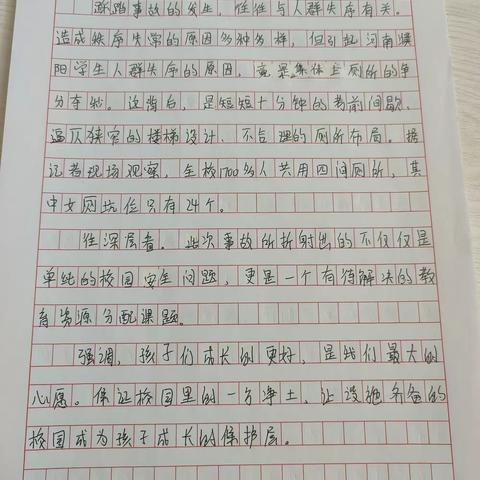 踩踏事故的发生，往往与人群失序有关。
造成秩序失常的原因多种多样，但引起河南濮
阳学生人群失序的原因，竟是集体上厕所的争
分夺秒。这背后，是短短十分钟的考前间歇、
逼仄狭窄的楼梯设计、不合理的厕所布局。据
记者现场观察，全校1700多人共用四间厕所，其
中女厕坑位只有24个。
往深层看，此次事故所折射出的不仅仅是
单纯的校园安全问题，更是一个有待解决的教
育资源分配课题。
强调，孩子们成长的更好，是我们最大的
心愿。保证校园里的一方净土，让设施齐备的
校园成为孩子成长的保护层。